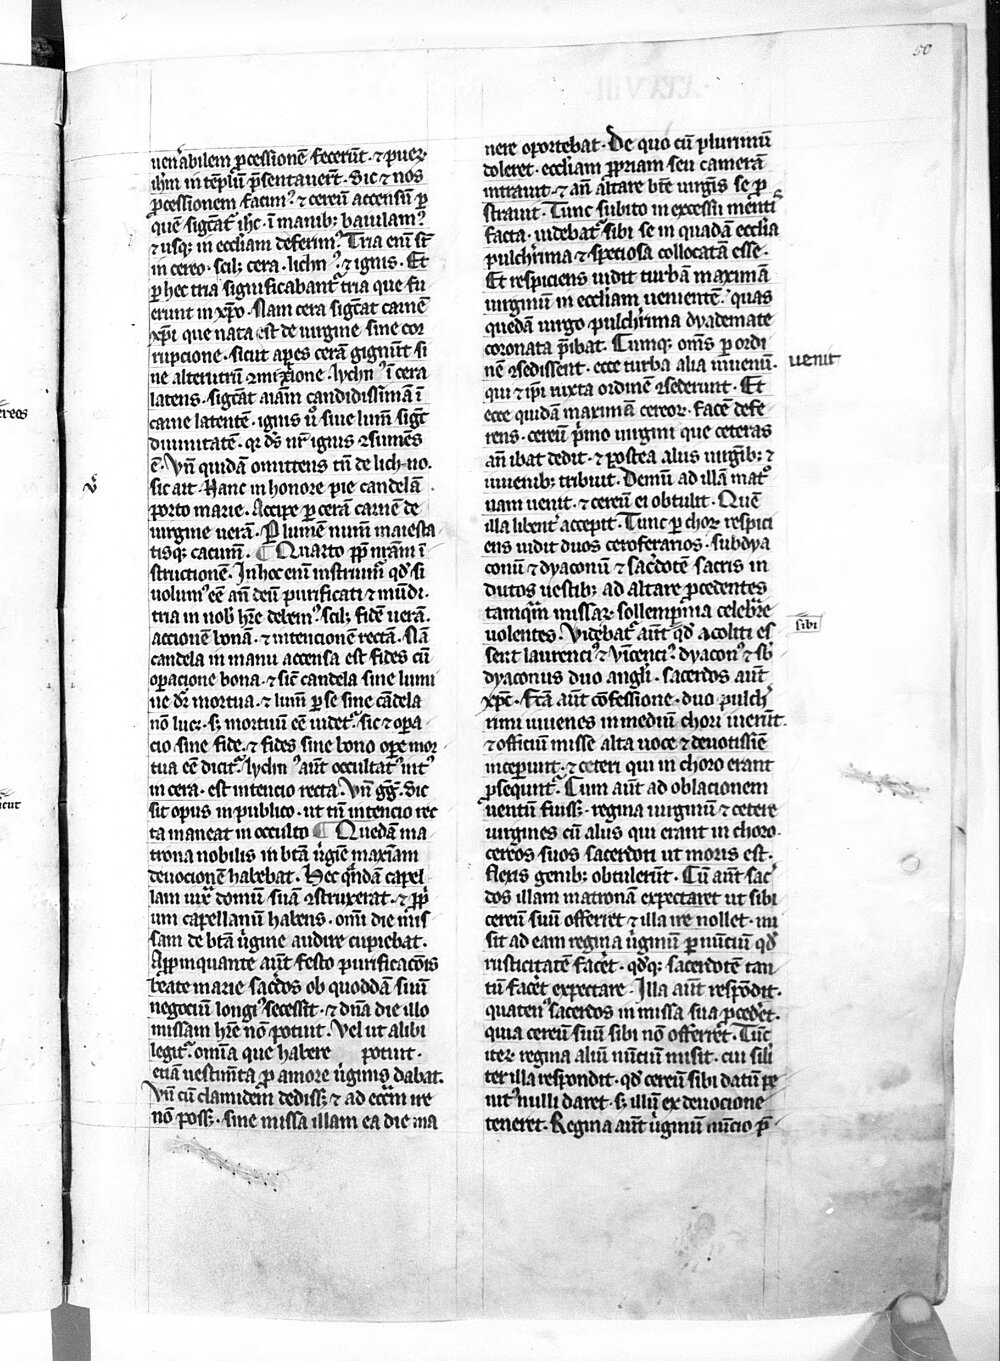 50
uen̄abilem ꝓcessionē fecerūt · ⁊ pueꝝ
ihm in tēplū p̄sentauer̄t · Sic ⁊ nos
ꝓcessionem facim᷒ ⁊ cereū accensū ꝑ
quē sigc̄at᷑ ihc · ī manibꝫ baiulam᷒
⁊ usqꝫ in eccliam deferim᷒ · Tria eni̅ st̄
in cereo · scilꝫ cera · lichn᷒ ⁊ ignis · Et
ꝑ hec tria significabant᷑ tria que fu
erunt in xp̄o · Nam cera sigc̄at carnē
xp̄i que nata est de uirgine sine cor
rupcione · sicut apes cerā gignūt si
ne alterutrū ꝯmixtione · lychn᷒ ī cera
latens · sigc̄at aīam candidissimā ī
carne latentē · ignis u̓o siue lum̄ sigc̄t
diuinitatē · qꝛ ds̄ nr̄ ignis ꝯsumēs
ē · Vn̄ quidā omittens tn̄ de lichno ·
sic ait · Hanc in honore pie candelā
porto marie · Accipe ꝑ cerā carnē de
uirgine uerā · Ꝑ lumē num̄ maiesta
tisqꝫ cacum̄ · ¶ Quarto ꝓpt̄ nr̄am ī
structionē · In hoc eni̅ instruim᷑ qd̓ si
uolum᷒ eē an̄ deū purificati ⁊ mūdi ·
tria in nob̄ hr̄e debem᷒ · scilꝫ fidē uerā ·
accionē bonā · ⁊ intencionē rectā · Nā
candela in manu accensa est fides cū
oꝑacione bona · ⁊ sic̄ candela sine lumi
ne dr̄ mortua · ⁊ lum̄ ꝑ se sine cādela
nō lucꝫ · sꝫ mortuū eē uidet᷑ · sic ⁊ oꝑa
cio sine fide · ⁊ fides sine bono oꝑe mor
tua eē dicit᷑ · lychn᷒ aūt occultat᷒ int᷒
in cera · est intencio recta · Vn̄ gḡ · Sic
sit opus in publico · ut tn̄ intencio rec
ta maneat in occulto ¶ Quedā ma
trona nobilis in btā u̓gīe maxīam
deuocionē habebat · Hec qn̄dā capel
lam iux̄ domū suā ꝯstruxerat · ⁊ ꝓp̄
um capellanū habens · omī die mis
sam de btā u̓gine audire cupiebat ·
Aꝓpinquante aūt festo purificac̄onis
beate marie sac̄dos ob quoddā suū
negociū longi᷒ secessit · ⁊ dn̄a die illo
missam hr̄e nō potuit · Vel ut alibi
legit᷑ · omīa que habere potuit ·
etiā uestim̄ta ꝓ amore u̓ginis dabat ·
Vn̄ cū clamidem dedissꝫ ⁊ ad ecc̄m ire
nō possꝫ · sine missa illam ea die ma
nere oportebat · De quo cū plurimū
doleret · eccliam ꝓpriam seu camerā
intrauit · ⁊ an̄ altare bte uirgīs se ꝓ
strauit · Tunc subito in excessu menti᷒
facta · uidebat᷑ sibi se in quadā ecclia
pulch̓rima ⁊ speciosa collocatā esse ·
Et respiciens uidit turbā maximā
uirginū in eccliam uenientē · quas
quedā uirgo pulch̓rima dyademate
coronata p̄ibat · Cumqꝫ om̄s ꝑ ordi
nē ꝯsedissent · ecce turba alia iuuenū ·
uenit
qui ⁊ ip̄i iuxta ordinē ꝯsederunt · Et
ecce quidā maximā cereoꝝ facē defe
rens · cereū p̄mo uirgini que ceteras
an̄ ibat dedit · ⁊ postea aliis uirgīibꝫ ⁊
iuuenibꝫ tribuit · Demū ad illā mat᷑
nam uenit · ⁊ cereū ei obtulit · Quē
illa libent᷑ accepit · Tunc ꝑ choꝝ respici
ens uidit duos ceroferarios · subdya
conū ⁊ dyaconū ⁊ sac̓dotē sacris in
dutos uestibꝫ ad altare ꝓcedentes
tamqm̄ missaꝝ sollempnia celebr̄e
uolentes · Videbat᷑ aūt qd̓ acoliti es
sibi
sent laurenci᷒ ⁊ Vīcenci᷒ dyacon᷒ ⁊ sb̓
dyaconus duo angli · sacerdos aūt
xp̄c · Fc̄a aūt cōfessione · duo pulch̓
rimi iuuenes in mediū chori uenerūt ·
⁊ officiū misse alta uoce ⁊ deuotissīe
inceperunt · ⁊ ceteri qui in choro erant
ꝓsequnt᷑ · Cum aūt ad oblacionem
uentū fuissꝫ · regina uirginū ⁊ cetere
uirgines cū aliis qui erant in choro ·
cereos suos sacerdoti ut moris est ·
flexis genibꝫ obtulerūt · Cū aūt sac̓
dos illam matronā expectaret ut sibi
cereū suū offerret ⁊ illa ire nollet · mi
sit ad eam regina u̓ginū ꝑ nūciū qd̓
rusticitatē fac̓et · qd̓qꝫ sacerdotē tan
tū fac̓et expectare · Illa aūt respōdit ·
quaten᷒ sacerdos in missa sua ꝓced̓et ·
quia cereū suū sibi nō offerret · Tūc
iteꝝ regina aliū nūciū misit · cui sili
ter illa respondit · qd̓ cereū sibi datū pe
nit᷒ nulli daret · sꝫ illū ex deuocione
teneret · Regina aūt u̓ginū nūcio p̄